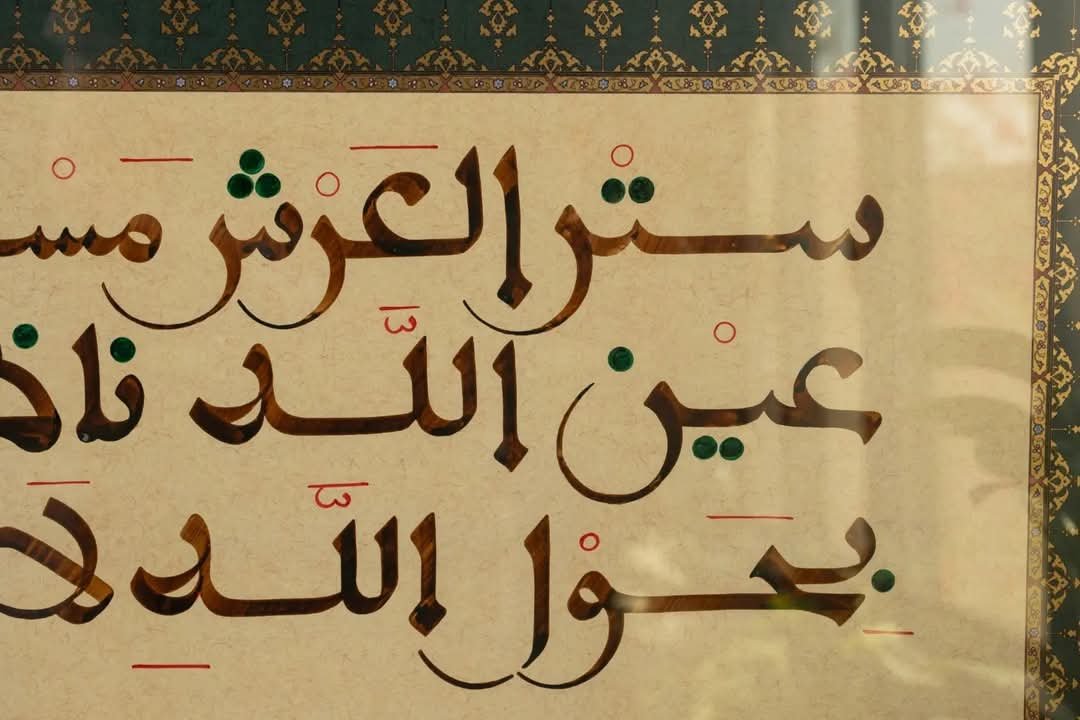 ستْر العَرْش مَسْـ
عيْن اللَّه ناظـ
بِحَوْل اللَّهِ لَا